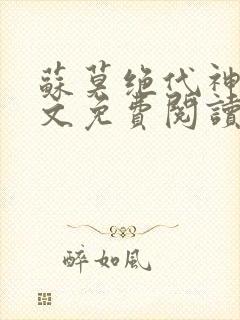 蘇莫绝代神
文免費閱讀
醉如風